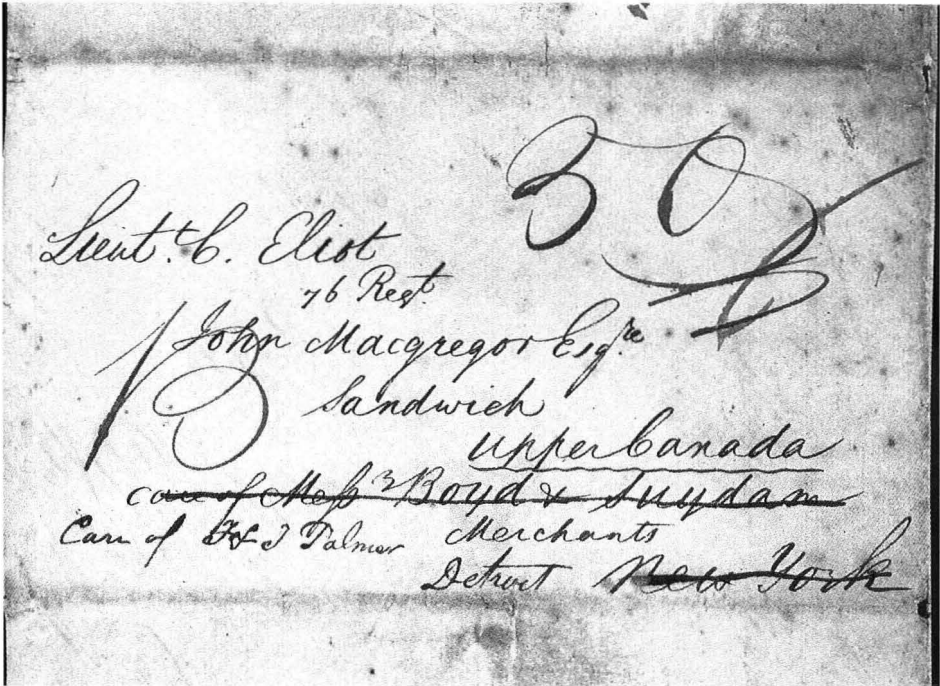 30
Lieut.t C. Eliot
76 Regt.
John Macgregor Esqre
Sandwich
Upper Canada
care of Messrs Boyd & Suydam
Care of F & T Palmer Merchants
Detroit New York